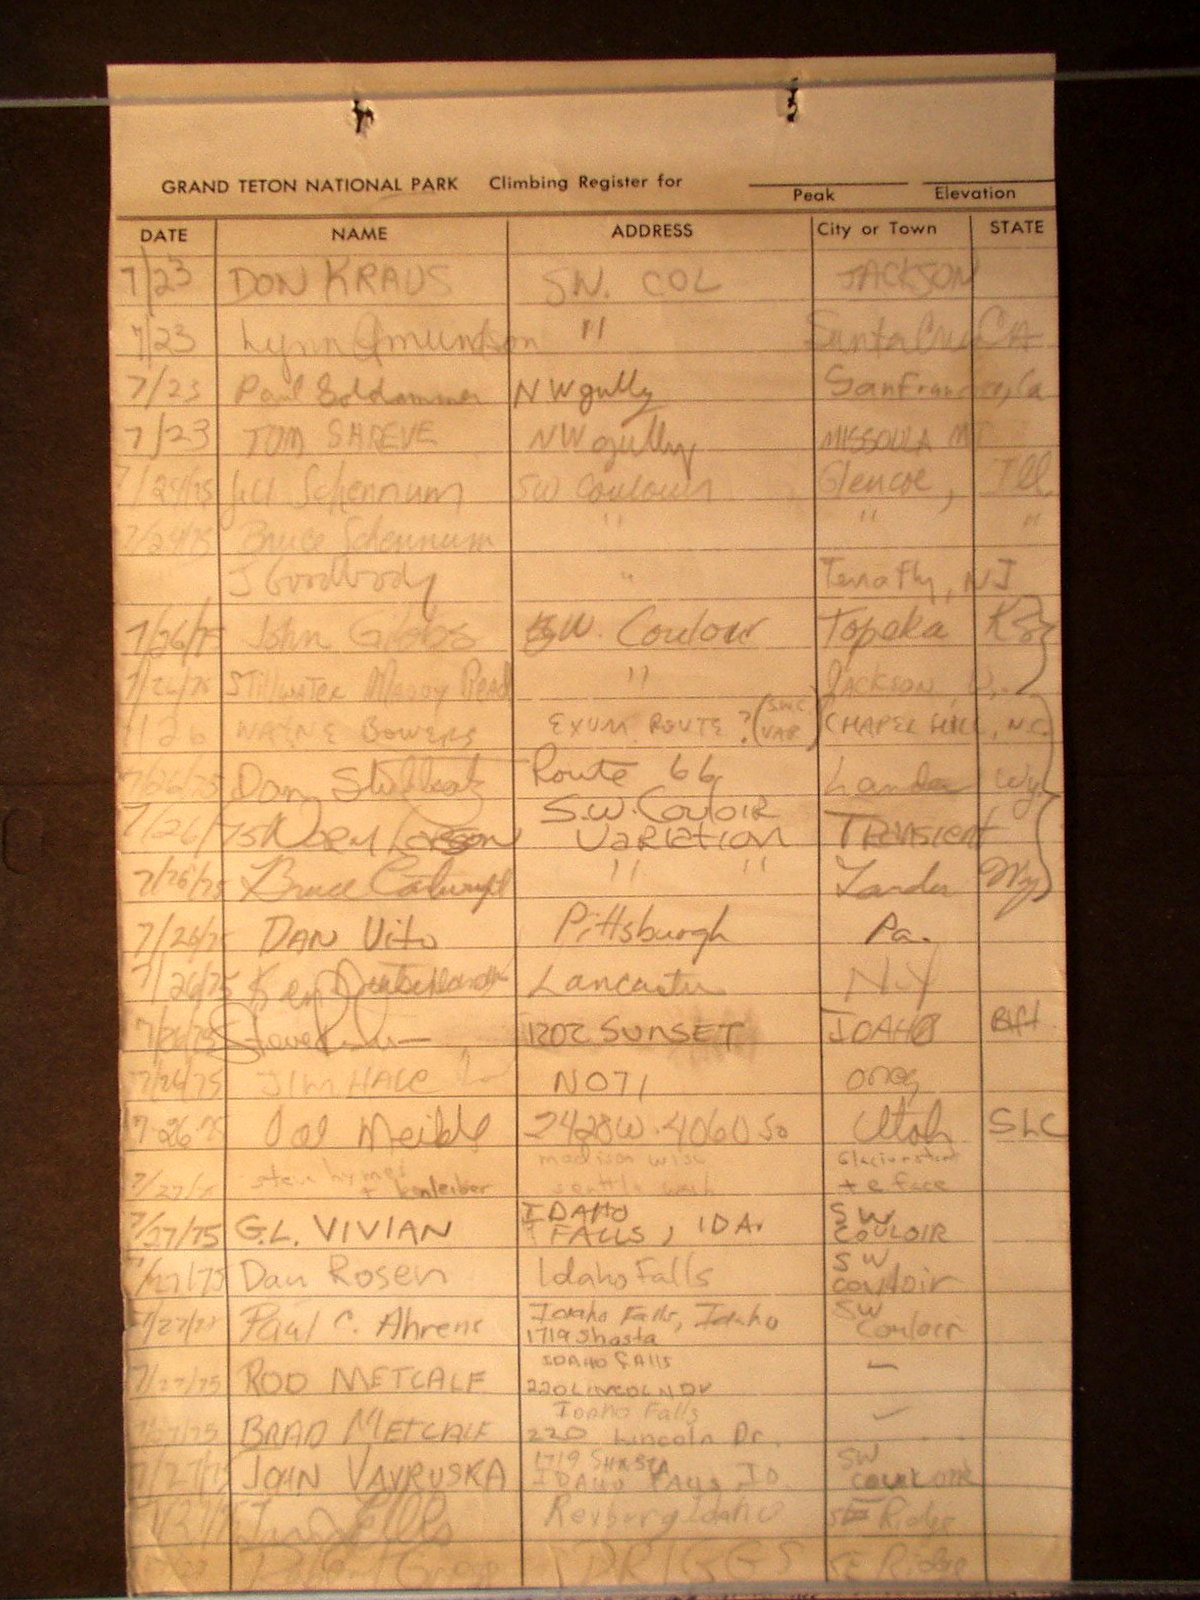 GRAND TETON NATIONAL PARK Climbing Register for
Peak Elevation
DATE NAME ADDRESS City or Town STATE
7/23 DON KRAUS SW. COL JACKSON
7/23 Lynn Amundson " Santa Cruz CA
7/23 Paul NW gully San Francisco, Ca
7/23 TOM SHREVE NW gully MISSOULA MT
7/24/75 Schennum SW Couloir Glencoe, Ill.
7/24/75 Bruce Schennum " " "
J " Tenafly, NJ
7/26/75 John Gibbs SW. Couloir Topeka Ks
7/26/75 STillwATER " JACKSON
7/26 WAYNE BOWERS EXUM ROUTE ? (S.W.C. VAR) CHAPEL HILL, N.C.
7/26/75 Dan Route 66 Lander Wy
7/26/75 Norm Larson S.W. CouloiR
VaRiATION TRansient
7/26/75 Bruce " " Lander Wy
7/26/75 DAN Vito Pittsburgh Pa.
7/26/75 Ken Lancaster N.Y
7/26/75 Steve 1202 SUNSET IDAHO
7/26/75 JIM HALE NO71 oreg
7-26-75 2428 W. 4060 So Utah SLC
7/27/75 madison wisc
+ seattle wash + e face
7/27/75 G.L. VIVIAN IDAHO
FALLS, IDA. SW
COULOIR
7/27/75 Dan Rosen Idaho Falls SW
couloir
7/27/75 Paul C. Ahrens Idaho Falls, Idaho
1719 Shasta SW
Couloir
7/27/75 ROD METCALF IDAHO FALLS
220 LINCOLN DR —
7/27/75 BRAD METCALF Idaho Falls
220 Lincoln Dr. —
7/27/75 JOHN VAVRUSKA 1719 SHASTA
IDAHO FALLS ID. SW
couloir
7/27/75 Rexburg Idaho SE Ridge
DRIGGS SE Ridge